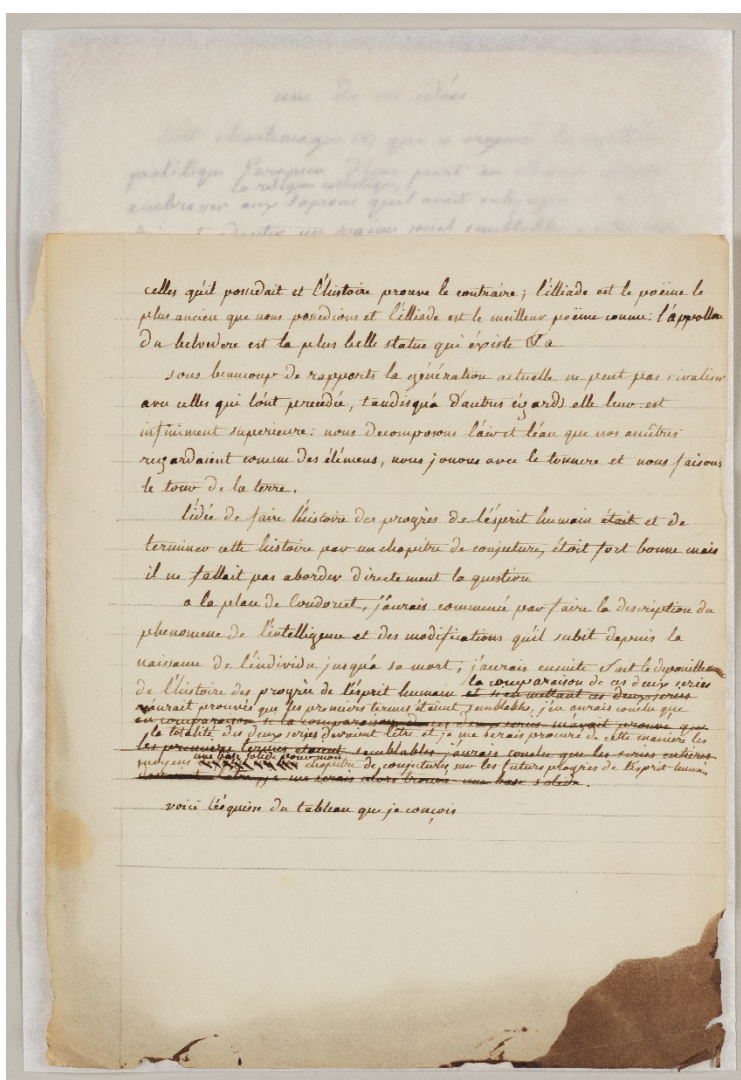 une de ces idées
politique Européen
la religion
celles qu'il possedait et l'histoire prouve le contraire; l'illiade est le poëme le
plus ancien que nous possedions et l'illiade est le meilleur poëme connu: l'appollon
du belvedere est la plus belle statue qui éxiste &a
sous beaucoup de rapports la génération actuelle ne peut pas rivaliser
avec celles qui l'ont precedée, tandisqu'à d'autres égards elle leur est
infiniment superieure: nous decomposons l'air et l'eau que nos ancêtres
regardaient comme des élémens, nous jouons avec le tonnerre et nous faisons
le tour de la terre.
l'idée de faire l'histoire des progrès de l'ésprit humain était et de
terminer cette histoire par un chapitre de conjecture, étoit fort bonne mais
il ne fallait pas aborder directement la question
a la place de Condorcet, j'aurais commencé par faire la description du
phenomene de l'intelligence et des modifications qu'il subit depuis la
naissance de l'individu jusqu'à sa mort; j'aurais ensuite fait le depouillement
la comparaison de ces deux series
de l'histoire des progrès de l'ésprit humain et si en mettant ces deux series
m'aurait prouvée que les premiers termes étaient semblables, j'en aurais conclu que
en comparaison si la comparaison de ces deux series m'avait prouvé que
la totalité des deux series devraient l'être et je me serais procuré de cette manière les
les premiers termes étaient semblables j'aurais conclu que les series entieres
une base solide pour mon
moyens chapitre de conjectures sur les futurs progrès de l'ésprit humain
je me serais alors trouvé une base solide.
voici l'ésquisse du tableau que je conçois